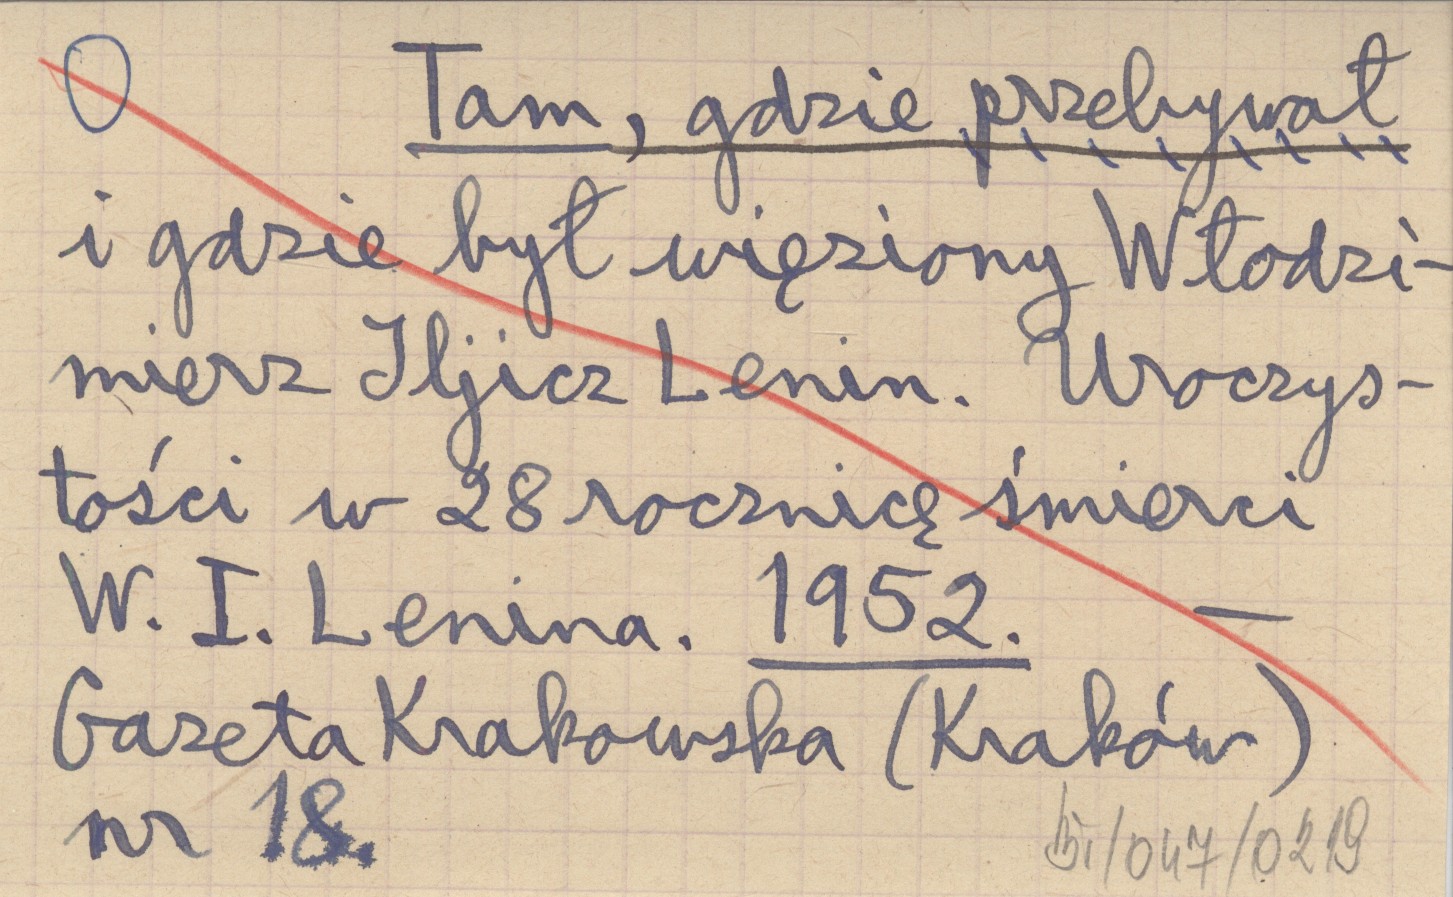 Tam, gdzie przebywał
i gdzie był więziony Włodzi-
mierz Iljicz Lenin. Uroczys-
tości w 28 rocznicę śmierci
W. I. Lenina. 1952. —
Gazeta Krakowska (Kraków)
nr 18.
/047/0219